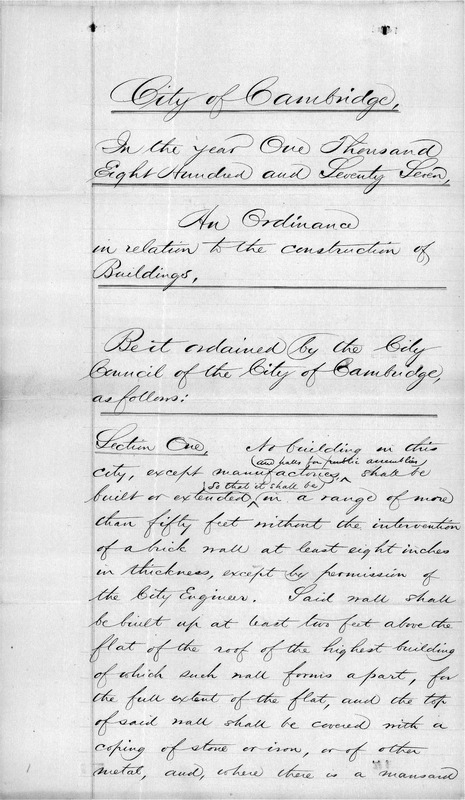 City of Cambridge,
In the year One Thousand
Eight Hundred and Seventy Seven,
An Ordinance
in relation to the construction of
Buildings,
Be it ordained by the City
Council of the City of Cambridge,
as follows:
Section One, No building in this
and halls for public assemblies
city, except manufactories, shall be
so that it shall be
built or extended in a range of more
than fifty feet without the intervention
of a brick wall at least eight inches
in thickness, except by permission of
the City Engineer. Said wall shall
be built up at least two feet above the
flat of the roof of the highest building
of which such wall forms a part, for
the full extent of the flat, and the top
of said wall shall be covered with a
coping of stone or iron, or of other
metal, and, where there is a mansard